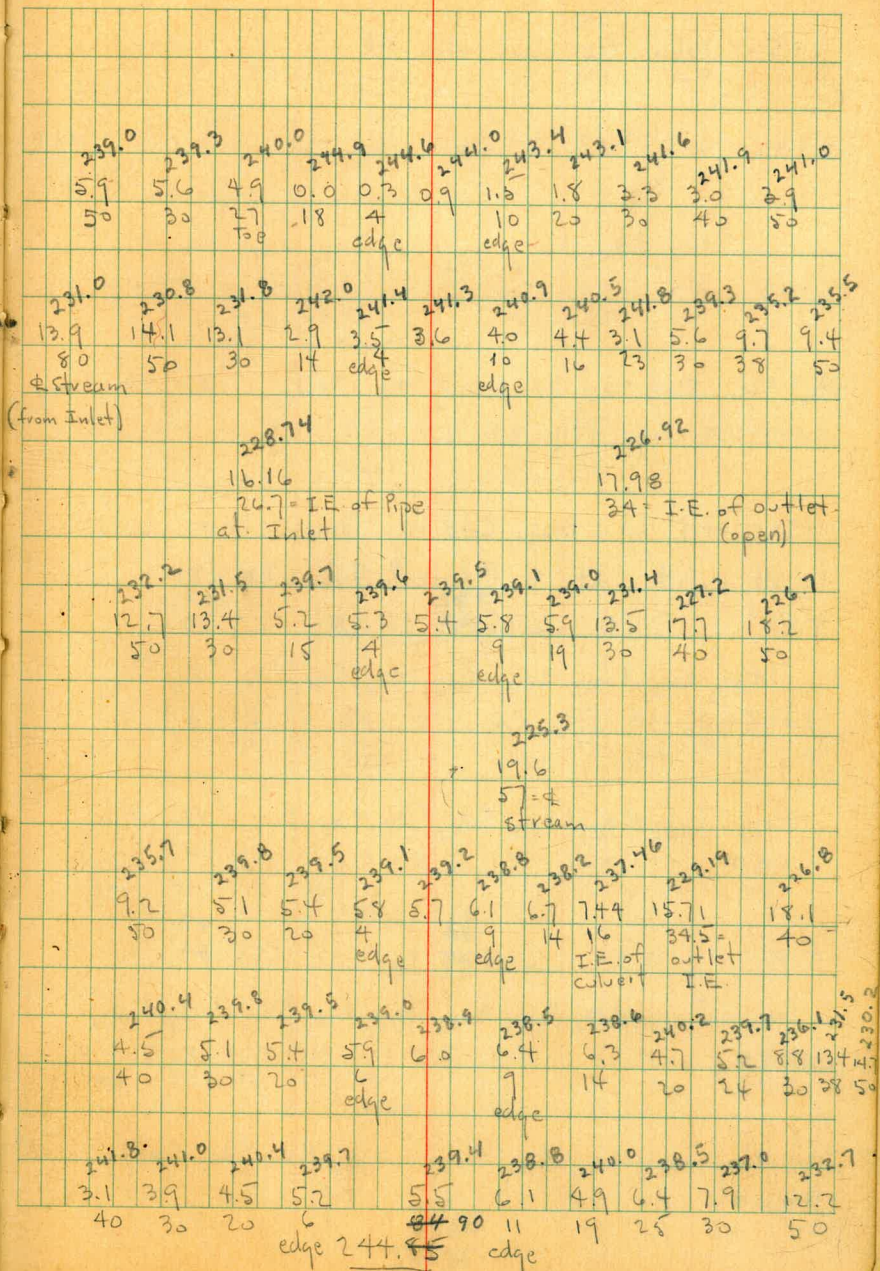 239.0 239.3 240.0 244.9 244.6 244.0 243.4 243.1 241.6 241.9 241.0
5.9 5.6 4.9 0.0 0.3 0.9 1.5 1.8 3.3 3.0 3.9
50 30 27 18 4 10 20 30 40 50
Toe edge edge
231.0 230.8 231.8 242.0 241.4 241.3 240.9 240.5 241.8 239.3 235.2 235.5
13.9 14.1 13.1 2.9 3.5 3.6 4.0 4.4 3.1 5.6 9.7 9.4
80 50 30 14 4 10 16 23 30 38 50
℄ Stream edge edge
(from Inlet)
228.74 226.92
16.16 17.98
26.7 = I.E. of Pipe 34 = I.E. of outlet
at Inlet (open)
232.2 231.5 239.7 239.6 239.5 239.1 239.0 231.4 227.2 226.7
12.7 13.4 5.2 5.3 5.4 5.8 5.9 13.5 17.7 18.2
50 30 15 4 9 19 30 40 50
edge edge
225.3
19.6
57 = ℄
stream
235.7 239.8 239.5 239.1 239.2 238.8 238.2 237.46 229.19 226.8
9.2 5.1 5.4 5.8 5.7 6.1 6.7 7.44 15.71 18.1
50 30 20 4 9 14 16 34.5 = 40
edge edge I.E. of outlet
culvert I.E.
240.4 239.8 239.5 239.0 238.9 238.5 238.6 240.2 239.7 236.1 231.5 230.2
4.5 5.1 5.4 5.9 6.0 6.4 6.3 4.7 5.2 8.8 13.4 14.7
40 30 20 6 9 14 20 24 30 38 50
edge edge
241.8 241.0 240.4 239.7 239.4 238.8 240.0 238.5 237.0 232.7
3.1 3.9 4.5 5.2 5.5 6.1 4.9 6.4 7.9 12.2
40 30 20 6 84 90 11 19 25 30 50
edge 244.85 edge